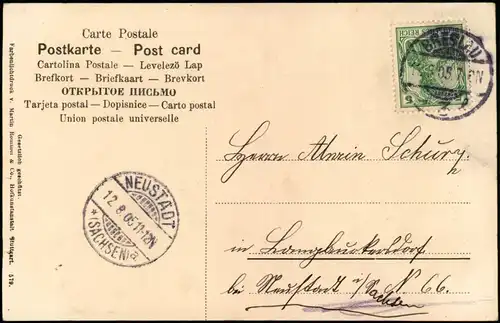 Carte Postale
Postkarte — Post card
Cartolina Postale — Levelező Lap
Brefkort — Briefkaart — Brevkort
ОТКРЫТОЕ ПИСЬМО
Tarjeta postal — Dopisnice — Carto postal
Union postale universelle
BRESLAU
NEUSTADT
12.8.05.11-12N
*(SACHSEN)a
Herrn Alwin Schurz
in Langburkersdorf
bei Neustadt i/Sachsen N 66.
Gesetzlich geschützt.
Farbenlichtdruck v. Martin Rommel & Co., Hofkunstanstalt Stuttgart. 579.